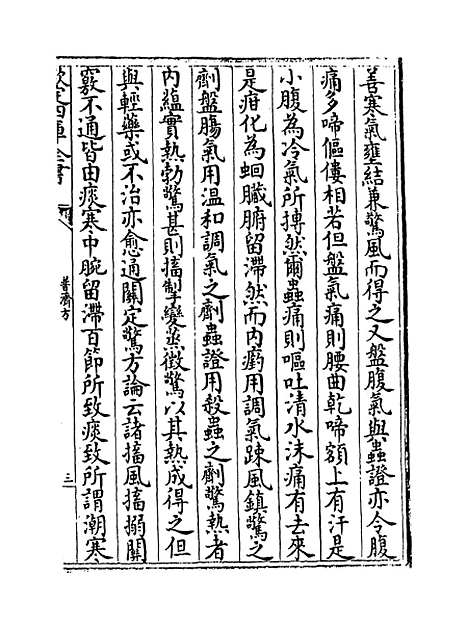 善寒氣壅結兼驚風而得之又盤腹氣與蟲證亦令腹
痛多啼傴僂相若但盤氣痛則腰曲乾啼額上有汗是
小腹為冷氣所搏然爾蟲痛則嘔吐清水沫痛有去來
是疳化為蛔臟腑留滯然而内癎用調氣疎風鎮驚之
劑盤腸氣用温和調氣之劑蟲證用殺蟲之劑驚熱者
内藴實熱勃驚甚則搐掣變蒸微驚以其熱成得之但
與輕藥或不治亦愈通關定驚方論云諸搐風搐搦關
竅不通皆由痰寒中腕留滯百節所致痰致所謂潮寒
欽定四庫全書
普濟方
三